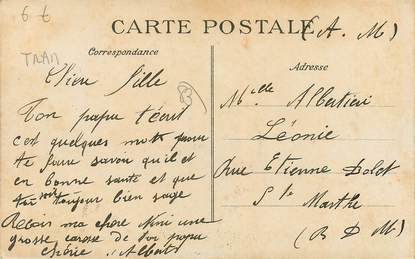 6 €
TRAM
CARTE POSTALE (A. M)
Correspondance
Adresse
Chère fille
Ton papa t'écrit
c'est quelques mots pour
te faire savoir qu'il et
en bonne sante et que
toujour bien sage
Reçois ma chere Nini une
grosse caresse de ton papa
chérie Albert
Melle Albertini
Léonie
Rue Etienne Dolet
Ste Marthe
(B D M)